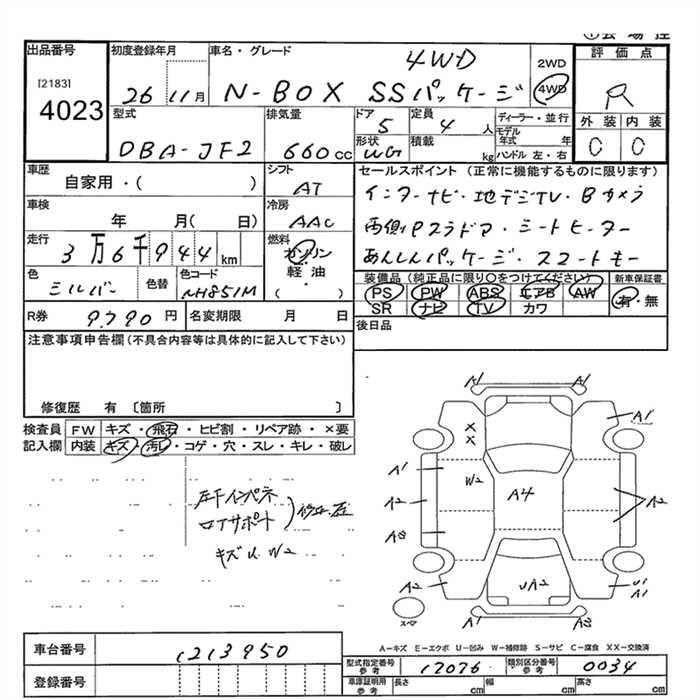 出品番号
[2183]
4023
初度登録年月
26 11月
車名・グレード
4WD
N-BOX SSパッケージ
2WD
4WD
評価点
R
外装 内装
C C
型式
DBA-JF2
排気量
660cc
ドア
5
定員
4人
形状
WG
積載
kg
ディーラー・並行
モデル年式 年
ハンドル 左・右
車歴
自家用・( )
シフト
AT
車検
年 月( 日)
冷房
AAC
走行
3万6千944km
燃料
ガソリン
軽油・
( )
色
シルバー
色替
色コード
NH851M
R券 9790円
名変期限 月 日
セールスポイント (正常に機能するものに限ります)
インターナビ・地デジTV・Bカメラ
両側Pスラドア・シートヒーター
あんしんパッケージ・スマートキー
装備品 (純正品に限り○をつけてください)
新車保証書
PS PW ABS エアB AW
SR ナビ TV カワ
有・無
後日品
注意事項申告欄(不具合内容等は具体的に記入して下さい)
修復歴 有 〔箇所 〕
検査員記入欄
FW キズ・飛石・ヒビ割・リペア跡・×要
内装 キズ・汚レ・コゲ・穴・スレ・キレ・破レ
左Fインパネ
ロアサポート
キズU W2
A1 A1
A1
X
X
W2
A1
A2
A4
A2
A2
UA2
U1
A1
A1
スペア
A-キズ E-エクボ U-凹み W-補修跡 S-サビ C-腐食 XX-交換済
車台番号
1213950
登録番号
型式指定番号 参考 17076
類別区分番号 参考 0034
車庫証明用 参考 長さ cm 幅 cm 高さ cm